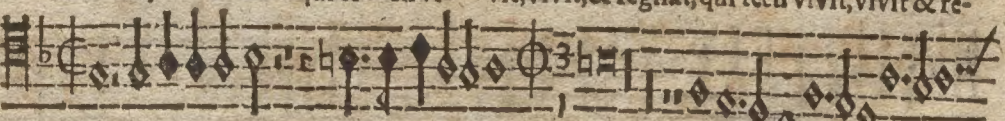 vit, vivit, & regnat, qui tecū vivit, vivit & re-
3
1